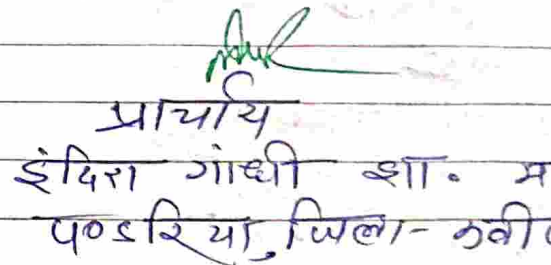 प्राचार्य
इंदिरा गांधी शा. म
पण्डरिया, जिला- कबी